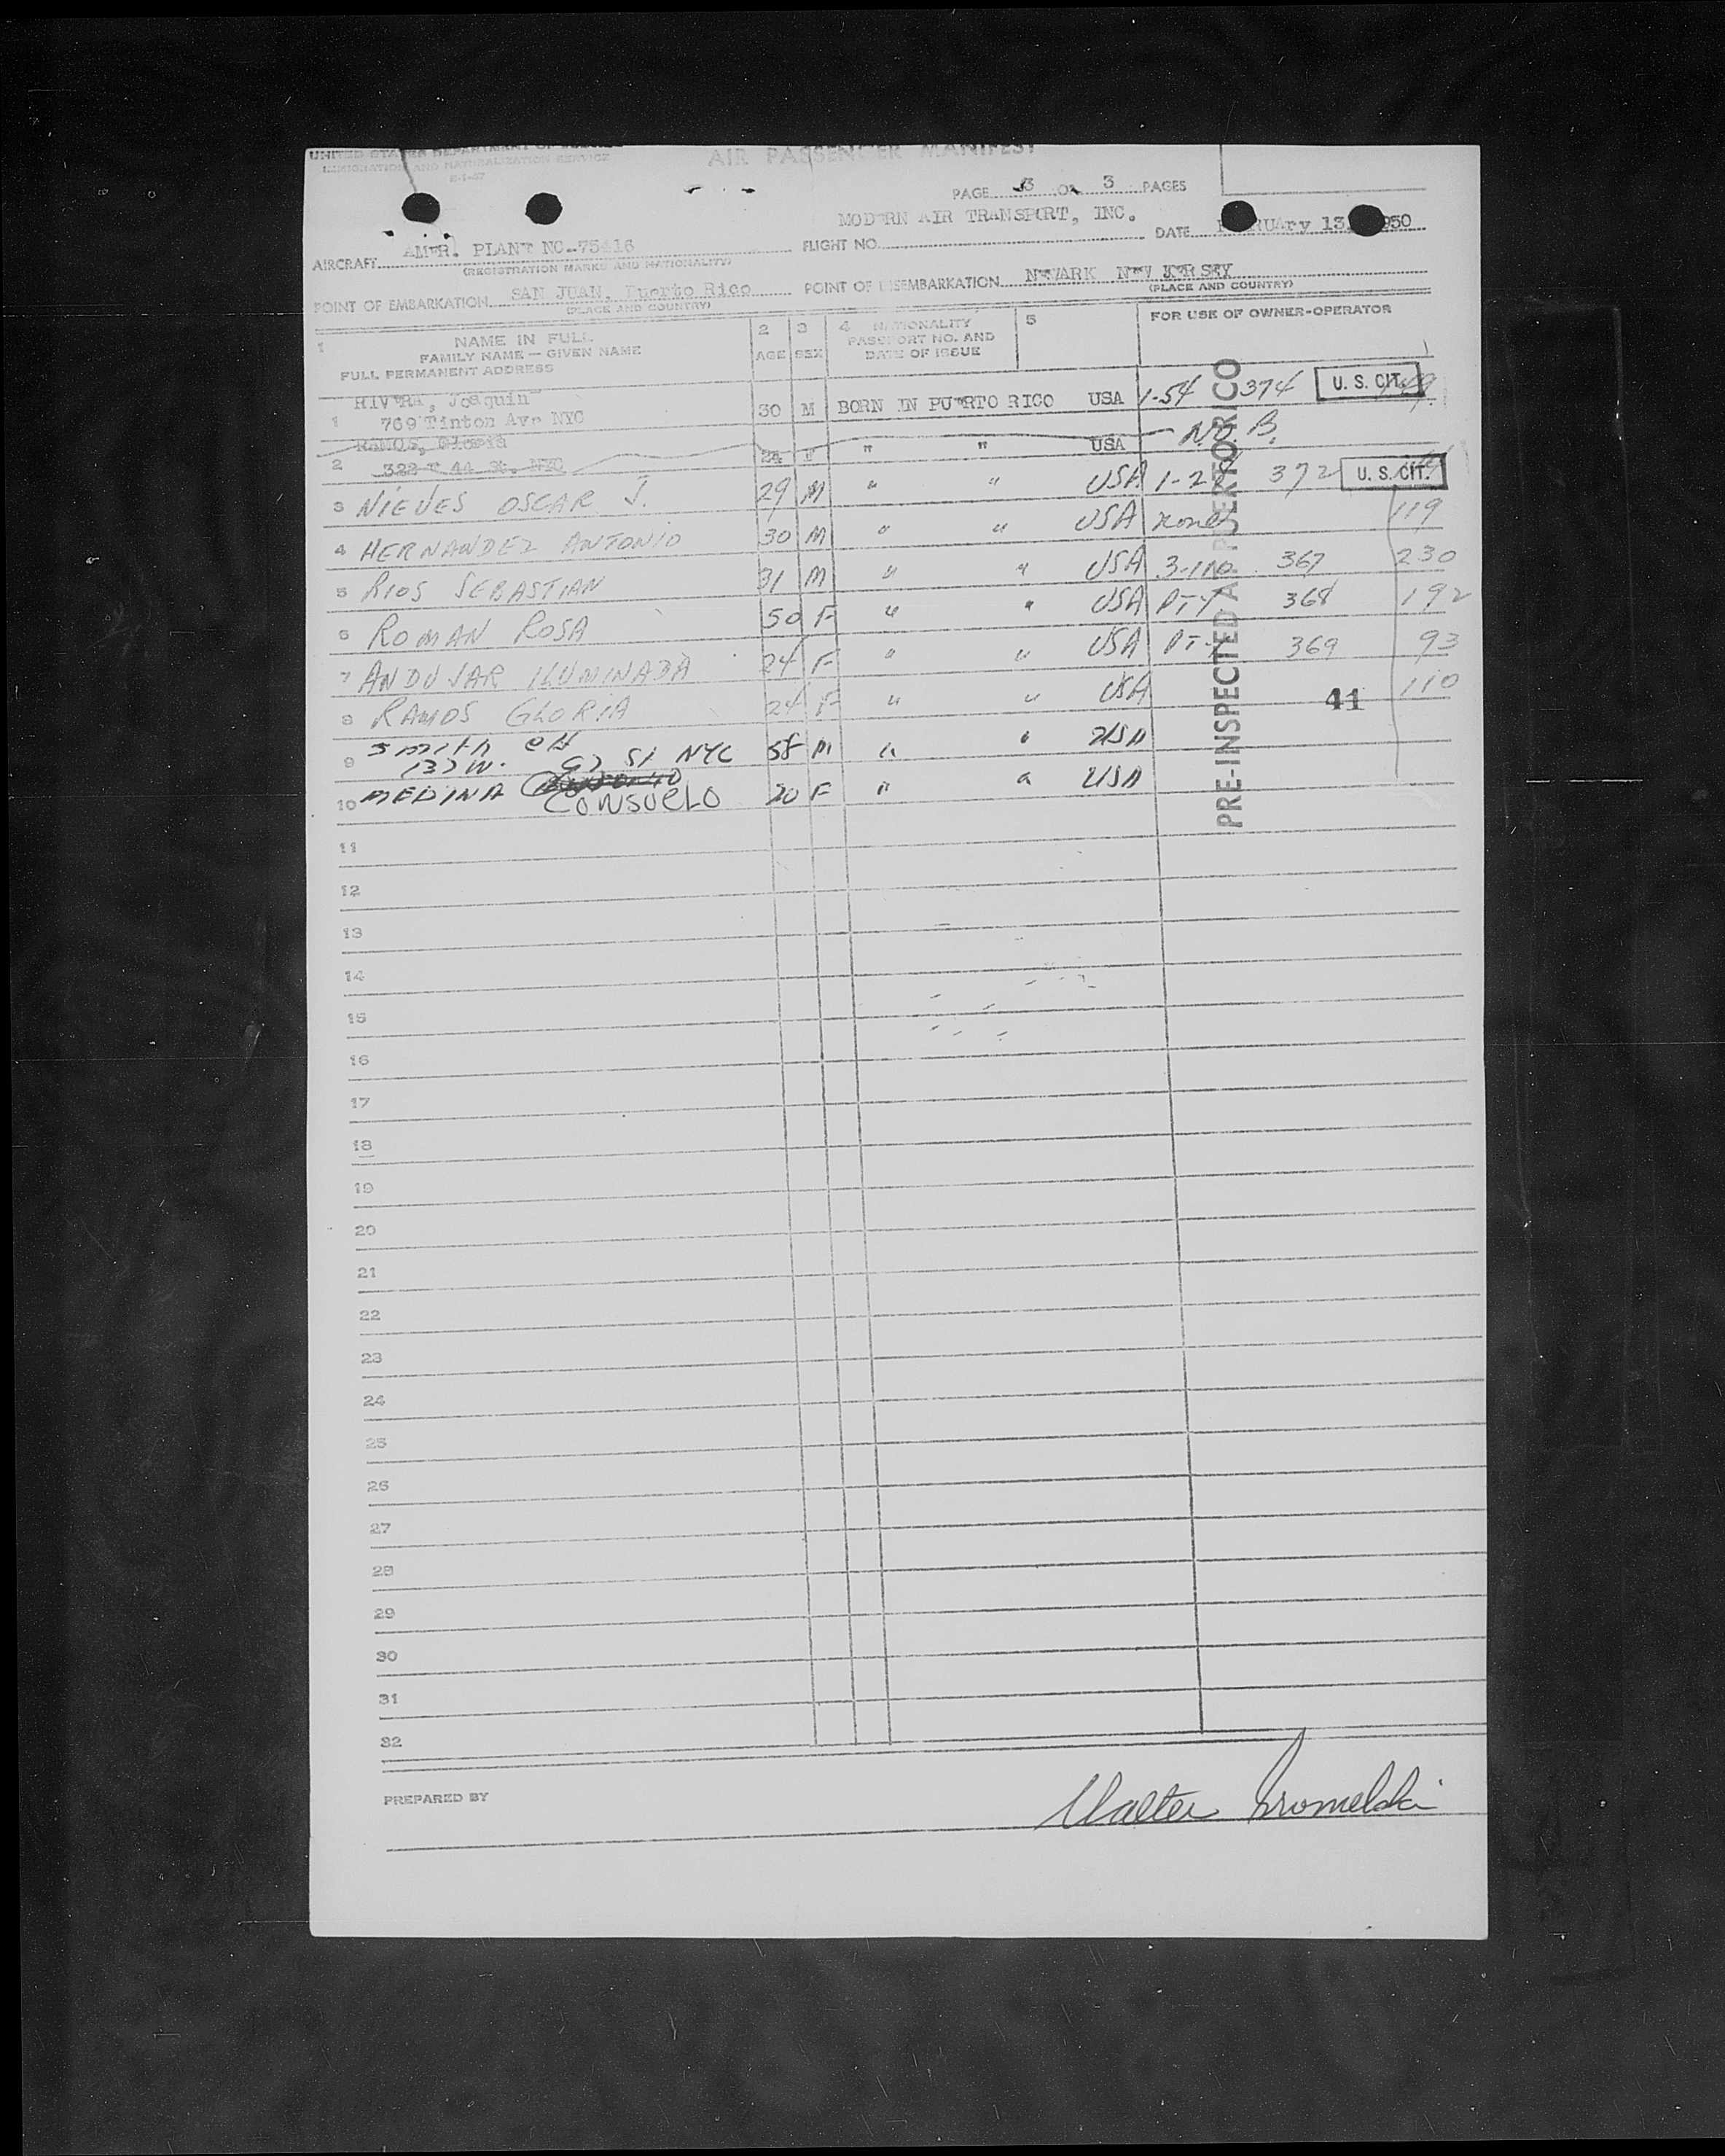 UNITED STATES DEPARTMENT OF JUSTICE
IMMIGRATION AND NATURALIZATION SERVICE
AIR PASSENGER MANIFEST
PAGE 3 OF 3 PAGES
MODERN AIR TRANSPORT, INC.
AIRCRAFT AMER. PLANT NC-75416 FLIGHT NO. DATE 13, 950
(REGISTRATION MARKS AND NATIONALITY)
POINT OF EMBARKATION SAN JUAN, Puerto Rico POINT OF DISEMBARKATION NEWARK NEW JERSEY
(PLACE AND COUNTRY) (PLACE AND COUNTRY)
1 NAME IN FULL 2 3 4 NATIONALITY 5 FOR USE OF OWNER-OPERATOR
FAMILY NAME — GIVEN NAME AGE SEX PASSPORT NO. AND
FULL PERMANENT ADDRESS DATE OF ISSUE
RIVERA, Joaquin
1 769 Tinton Ave NYC 30 M BORN IN PUERTO RICO USA 1-54 374 U. S. CIT.
RAMOS, Gloria
2 322 E 44 St. NYC 24 F " " USA N.O.B.
3 NIEVES OSCAR J. 29 M " " USA 1-28 372 U. S. CIT.
4 HERNANDEZ ANTONIO 30 M " " USA 119
5 RIOS SEBASTIAN 31 M " " USA 3-110 367 230
6 ROMAN ROSA 50 F " " USA PTY 368 192
7 ANDUJAR ILUMINADA 24 F " " USA PTY 369 93
8 RAMOS GLORIA 24 F " " USA 41 110
9 SMITH 58 M " " USA
137 W. 67 St NYC
10 MEDINA CONSUELO 20 F " " USA
PRE-INSPECTED AT PUERTO RICO
11
12
13
14
15
16
17
18
19
20
21
22
23
24
25
26
27
28
29
30
31
32
PREPARED BY Walter